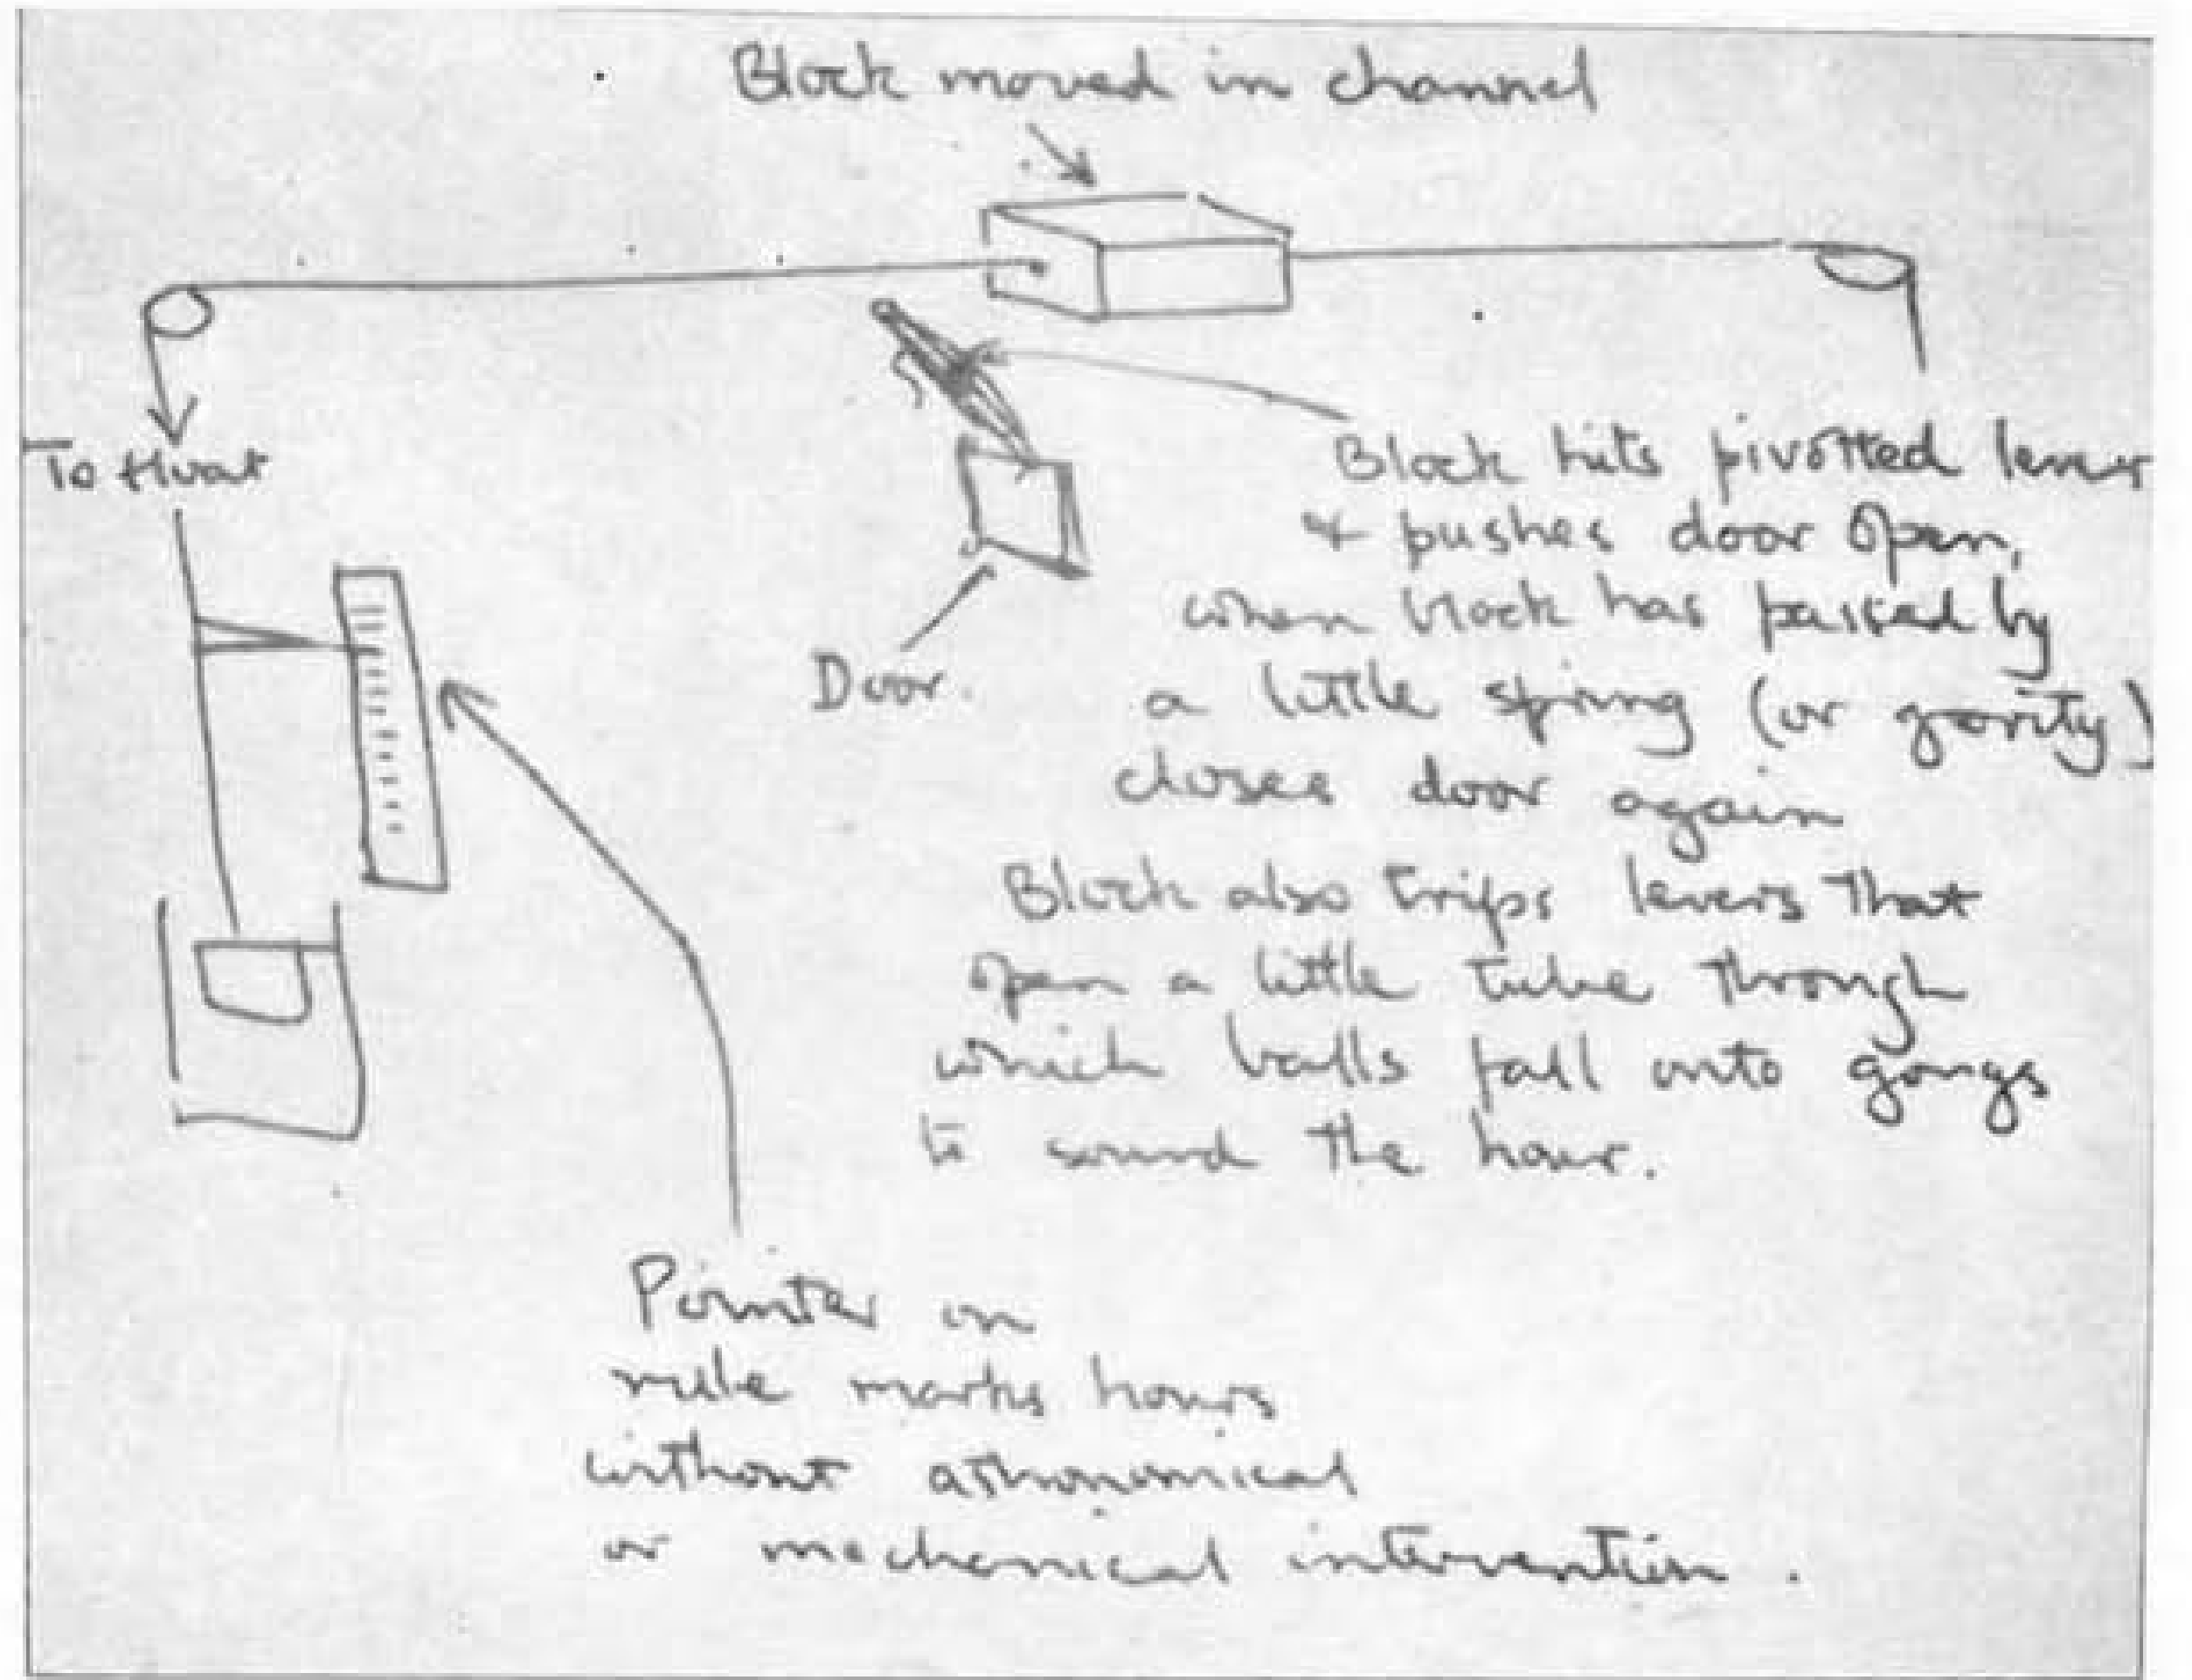 Block moved in channel
To float
Block hits pivotted lever
& pushes door open,
when block has passed by
a little spring (or gravity)
closes door again
Door.
Block also trips levers that
open a little tube through
which balls fall onto gongs
to sound the hour.
Pointer on
rule marks hours
without astronomical
or mechanical intervention.